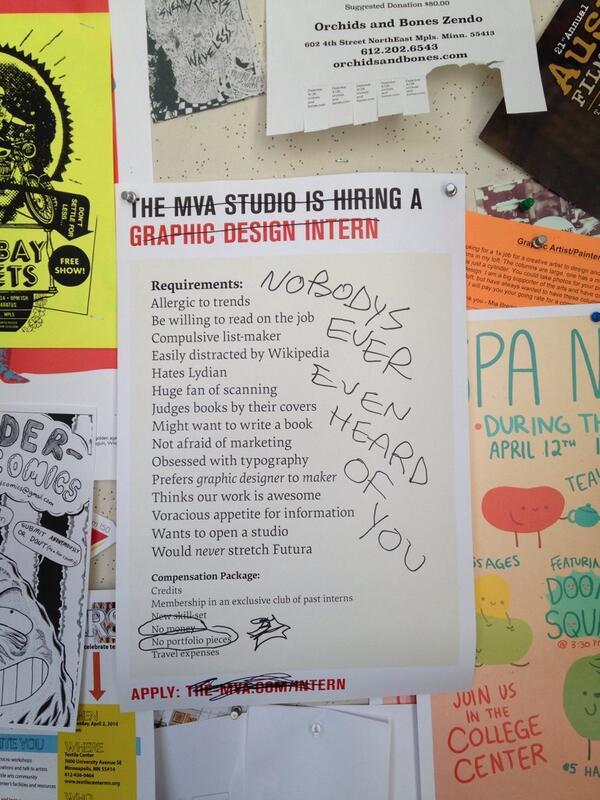 Suggested Donation $80.00
Orchids and Bones Zendo
602 4th Street NorthEast Mpls. Minn. 55413
612.202.6543
orchidsandbones.com
21st Annual
FILM
DON'T
SETTLE FOR
LESS...
BAY
ETS
FREE
SHOW!
THE MVA STUDIO IS HIRING A
GRAPHIC DESIGN INTERN
Requirements:
Allergic to trends
Be willing to read on the job
Compulsive list-maker
Easily distracted by Wikipedia
Hates Lydian
Huge fan of scanning
Judges books by their covers
Might want to write a book
Not afraid of marketing
Obsessed with typography
Prefers graphic designer to maker
Thinks our work is awesome
Voracious appetite for information
Wants to open a studio
Would never stretch Futura
NOBODYS
EVER
EVEN
HEARD
OF
YOU
Compensation Package:
Credits
Membership in an exclusive club of past interns
New skill-set
No money
No portfolio pieces
Travel expenses
APPLY: THE-MVA.COM/INTERN
Graphic Artist/Painter
PA N
DURING TH
APRIL 12TH
TEA
SSAGES
FEATURIN
DOOM
SQU
@ 3:30
JOIN US
IN THE
COLLEGE
CENTER
DER-
COMICS
SUBMIT ANONYMOUSLY
OR DON'T
celebrate te
April 2, 2014
WHERE
Textile Center
3000 University Avenue SE
Minneapolis, MN 55414
612-436-0464
www.textilecentermn.org
ITE YOU